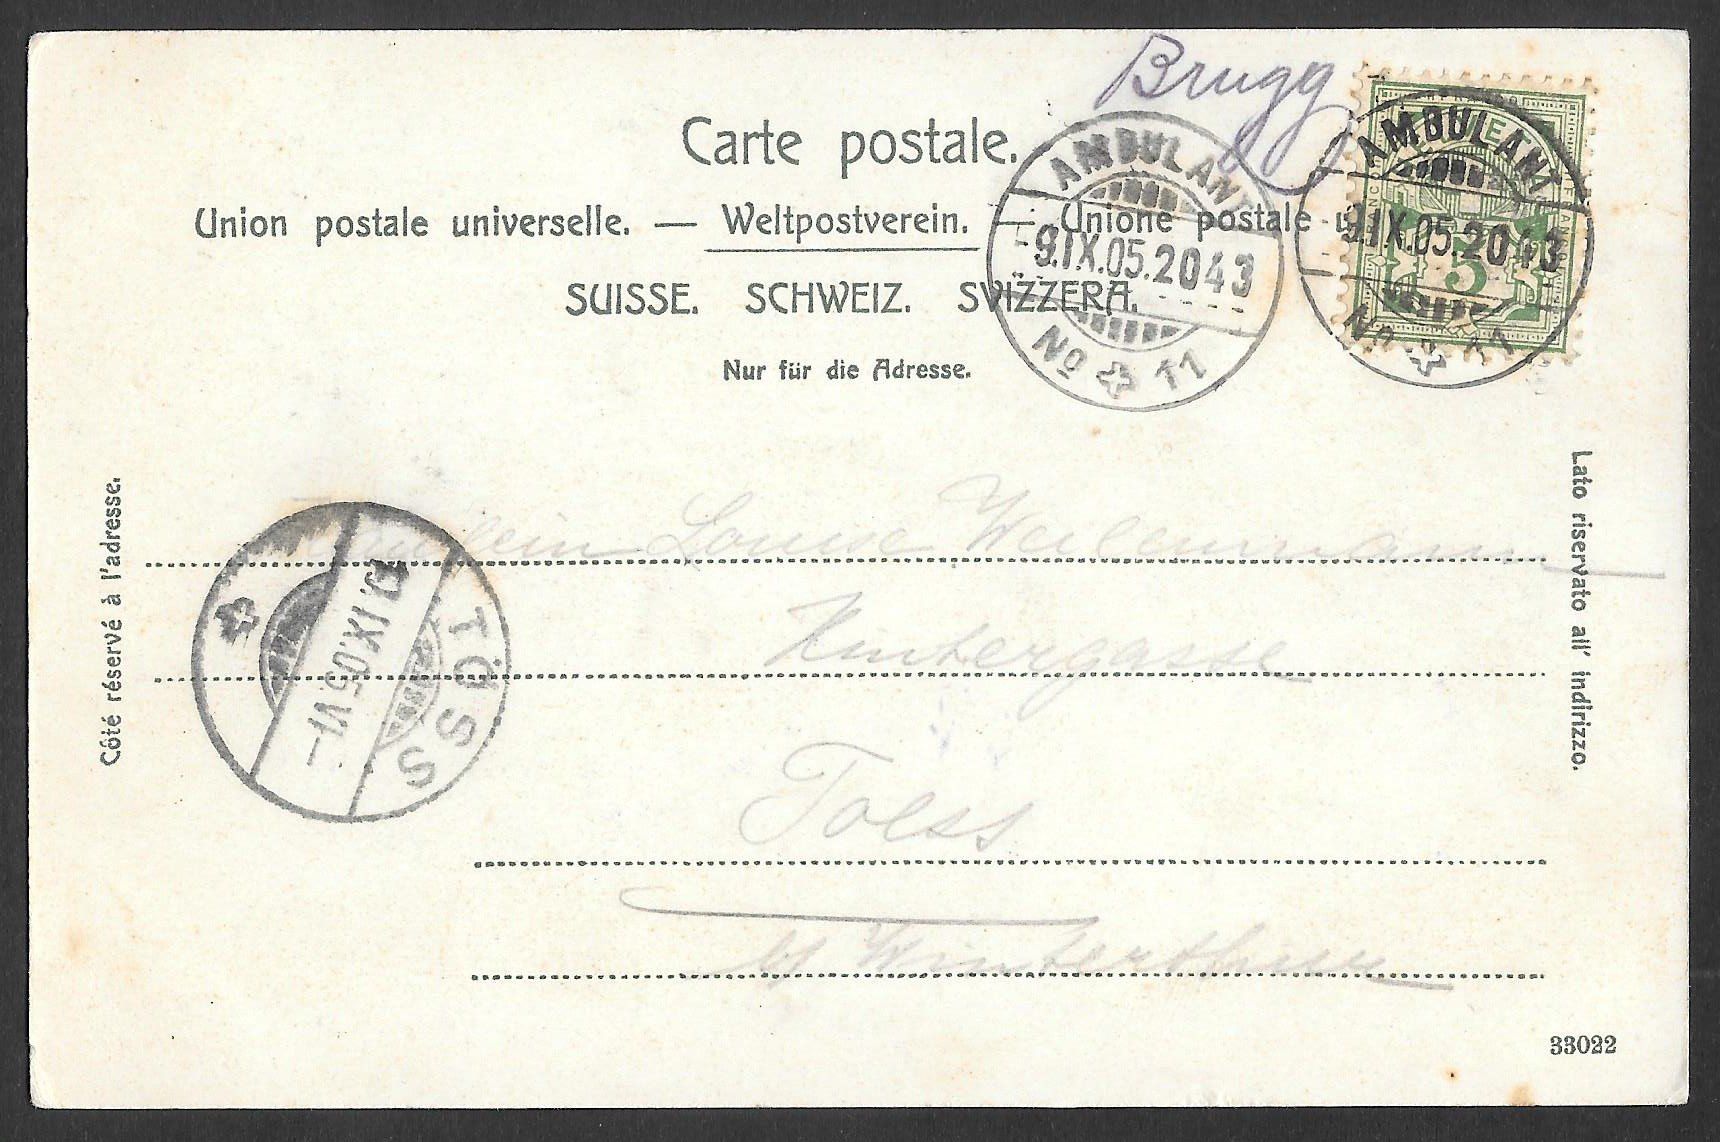 Brugg
Carte postale.
Union postale universelle. — Weltpostverein. — Unione postale u
SUISSE. SCHWEIZ. SVIZZERA.
Nur für die Adresse.
AMBULANT
9.IX.05.2043
No 11
AMBULANT
9.IX.05.20 43
No 11
5
Côté réservé à l'adresse.
Lato riservato all' indirizzo.
Fräulein Louise
Hintergasse
Toess
b/ Winterthur
TÖSS
IX.05.VI–
33022